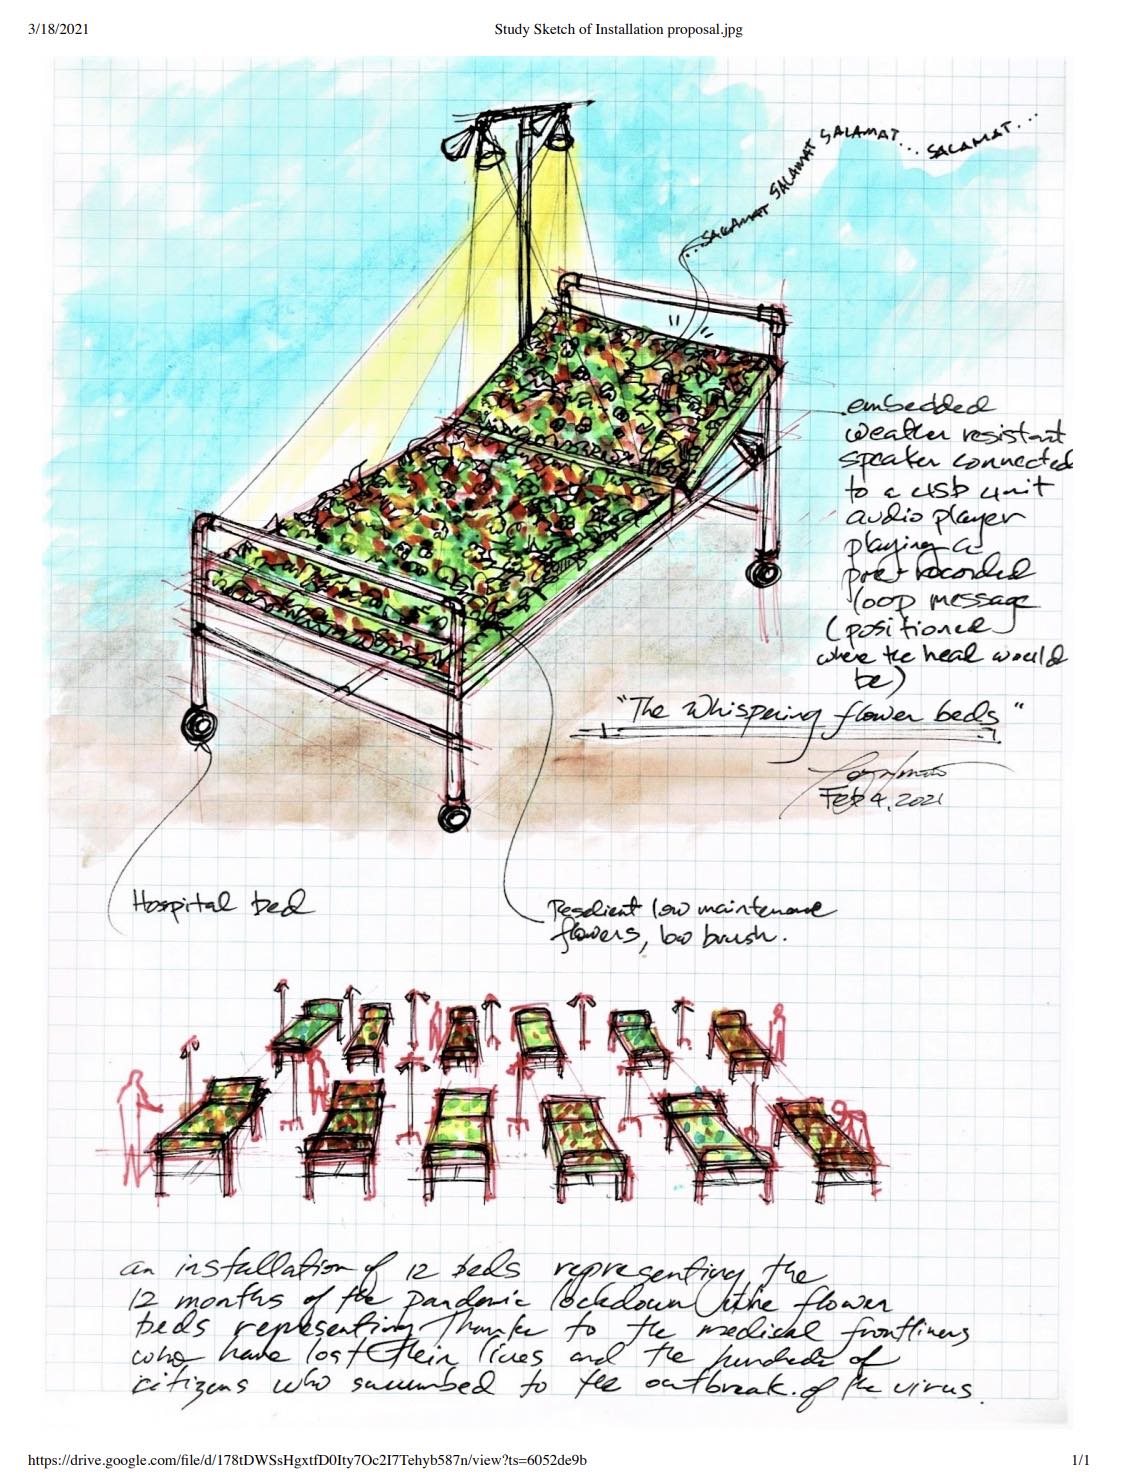 3/18/2021
Study Sketch of Installation proposal.jpg
...SALAMAT SALAMAT SALAMAT... SALAMAT...
embedded
weather resistant
speaker connected
to a usb unit
audio player
playing a
pre-recorded
loop message
(positioned
where the head would
be)
"The Whispering flower beds"
Feb 4, 2021
Hospital bed
Reselient low maintenance
flowers, low brush.
an installation of 12 beds representing the
12 months of the pandemic lockdown the flower
beds representing Thanks to the medical frontliners
who have lost their lives and the hundreds of
citizens who succumbed to the outbreak of the virus.
https://drive.google.com/file/d/178tDWSsHgxtfD0Ity7Oc2I7Tehyb587n/view?ts=6052de9b
1/1